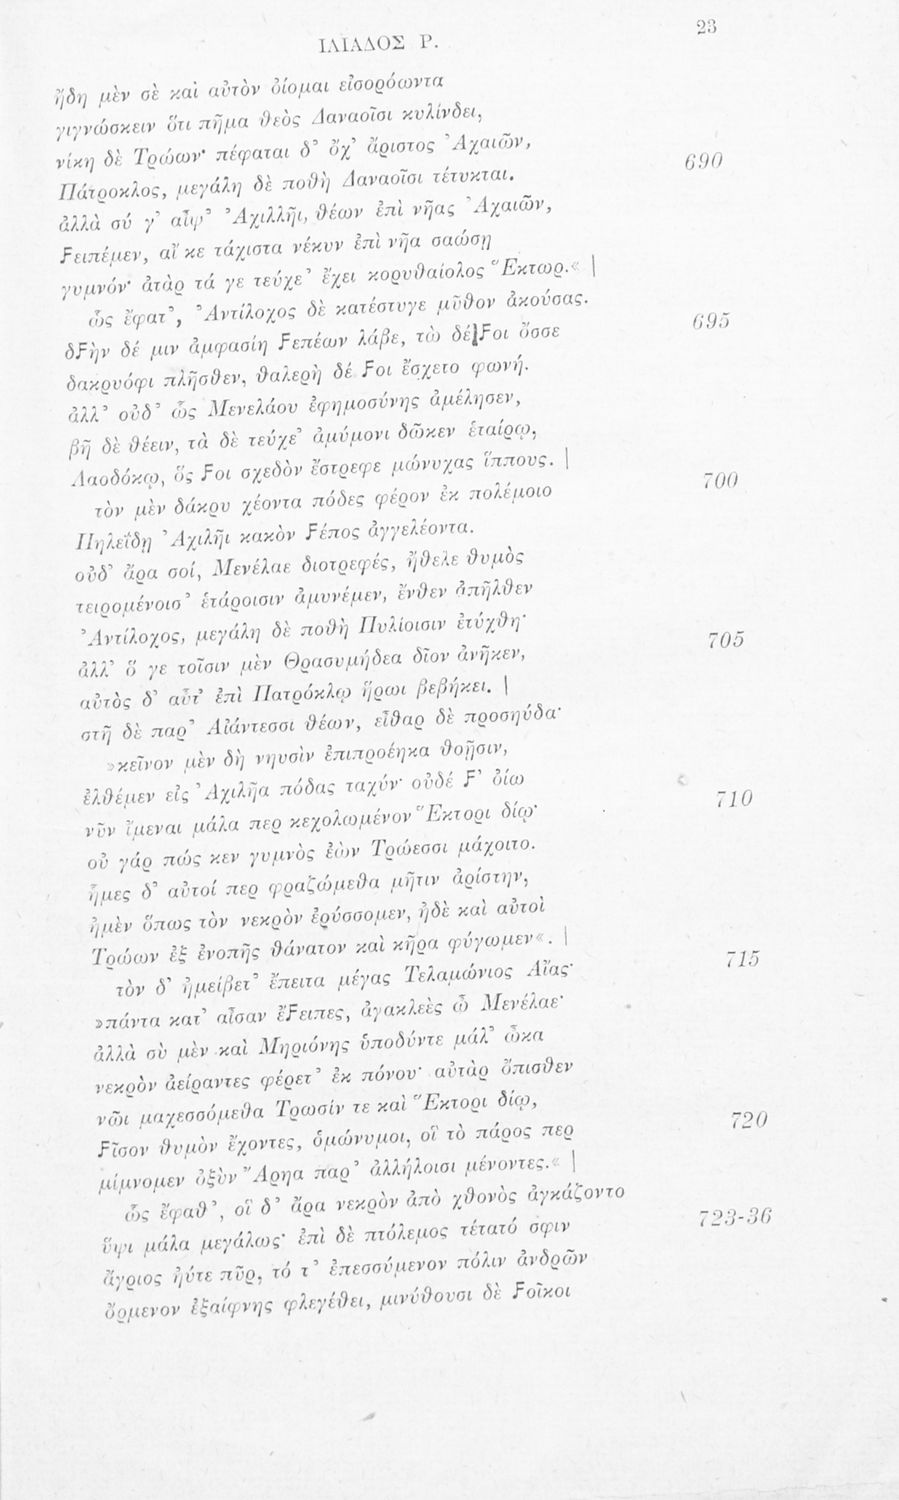 ΙΛΙΑΔΟΣ Ρ.
23
ἤδη μὲν σὲ καὶ αὐτὸν ὀίομαι εἰσορόωντα
γιγνώσκειν ὅτι πῆμα θεὸς Δαναοῖσι κυλίνδει,
νίκη δὲ Τρώων· πέφαται δ’ ὄχ’ ἄριστος Ἀχαιῶν,
690
Πάτροκλος, μεγάλη δὲ ποθὴ Δαναοῖσι τέτυκται.
ἀλλὰ σύ γ’ αἶψ’ Ἀχιλλῆι, θέων ἐπὶ νῆας Ἀχαιῶν,
Ϝειπέμεν, αἴ κε τάχιστα νέκυν ἐπὶ νῆα σαώσῃ
γυμνόν· ἀτὰρ τά γε τεύχε’ ἔχει κορυθαίολος Ἕκτωρ.« |
ὣς ἔφατ’, Ἀντίλοχος δὲ κατέστυγε μῦθον ἀκούσας.
695
δϜὴν δέ μιν ἀμφασίη Ϝεπέων λάβε, τὼ δέ|Ϝοι ὄσσε
δακρυόφι πλῆσθεν, θαλερὴ δέ Ϝοι ἔσχετο φωνή.
ἀλλ’ οὐδ’ ὧς Μενελάου ἐφημοσύνης ἀμέλησεν,
βῆ δὲ θέειν, τὰ δὲ τεύχε’ ἀμύμονι δῶκεν ἑταίρῳ,
Λαοδόκῳ, ὅς Ϝοι σχεδὸν ἔστρεφε μώνυχας ἵππους. |
700
τὸν μὲν δάκρυ χέοντα πόδες φέρον ἐκ πολέμοιο
Πηλεΐδῃ Ἀχιλῆι κακὸν Ϝέπος ἀγγελέοντα.
οὐδ’ ἄρα σοί, Μενέλαε διοτρεφές, ἤθελε θυμὸς
τειρομένοισ’ ἑτάροισιν ἀμυνέμεν, ἔνθεν ἀπῆλθεν
Ἀντίλοχος, μεγάλη δὲ ποθὴ Πυλίοισιν ἐτύχθη·
705
ἀλλ’ ὅ γε τοῖσιν μὲν Θρασυμήδεα δῖον ἀνῆκεν,
αὐτὸς δ’ αὖτ’ ἐπὶ Πατρόκλῳ ἥρωι βεβήκει. |
στῆ δὲ παρ’ Αἰάντεσσι θέων, εἶθαρ δὲ προσηύδα·
»κεῖνον μὲν δὴ νηυσὶν ἐπιπροέηκα θοῇσιν,
ἐλθέμεν εἰς Ἀχιλῆα πόδας ταχύν· οὐδέ Ϝ’ ὀίω
710
νῦν ἴμεναι μάλα περ κεχολωμένον Ἕκτορι δίῳ·
οὐ γάρ πώς κεν γυμνὸς ἐὼν Τρώεσσι μάχοιτο.
ἦμες δ’ αὐτοί περ φραζώμεθα μῆτιν ἀρίστην,
ἠμὲν ὅπως τὸν νεκρὸν ἐρύσσομεν, ἠδὲ καὶ αὐτοὶ
Τρώων ἐξ ἐνοπῆς θάνατον καὶ κῆρα φύγωμεν«. |
715
τὸν δ’ ἠμείβετ’ ἔπειτα μέγας Τελαμώνιος Αἴας·
»πάντα κατ’ αἶσαν ἔϜειπες, ἀγακλεὲς ὦ Μενέλαε·
ἀλλὰ σὺ μὲν καὶ Μηριόνης ὑποδύντε μάλ’ ὦκα
νεκρὸν ἀείραντες φέρετ’ ἐκ πόνου· αὐτὰρ ὄπισθεν
νῶι μαχεσσόμεθα Τρωσίν τε καὶ Ἕκτορι δίῳ,
720
Ϝῖσον θυμὸν ἔχοντες, ὁμώνυμοι, οἳ τὸ πάρος περ
μίμνομεν ὀξὺν Ἄρηα παρ’ ἀλλήλοισι μένοντες.« |
ὣς ἔφαθ’, οἳ δ’ ἄρα νεκρὸν ἀπὸ χθονὸς ἀγκάζοντο
723-36
ὕψι μάλα μεγάλως· ἐπὶ δὲ πτόλεμος τέτατό σφιν
ἄγριος ἠύτε πῦρ, τό τ’ ἐπεσσύμενον πόλιν ἀνδρῶν
ὄρμενον ἐξαίφνης φλεγέθει, μινύθουσι δὲ Ϝοῖκοι